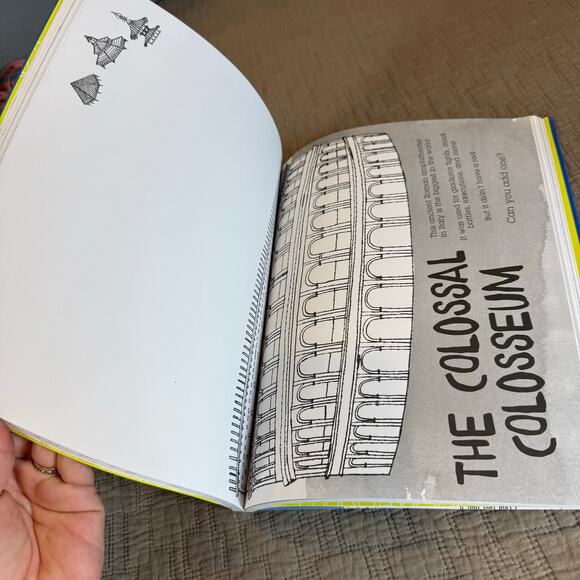 THE COLOSSAL
COLOSSEUM
This ancient Roman amphitheater
in Italy is the biggest in the world.
It was used for gladiator fights, mock
battles, executions, and more.
But it didn't have a roof.
Can you add one?